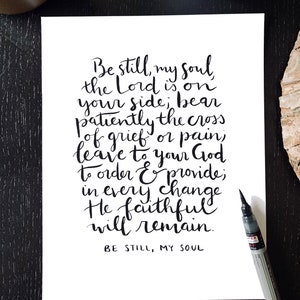 Be still, my soul,
the Lord is on
your side; bear
patiently the cross
of grief or pain;
leave to your God
to order & provide;
in every change
He faithful
will remain.
BE STILL, MY SOUL